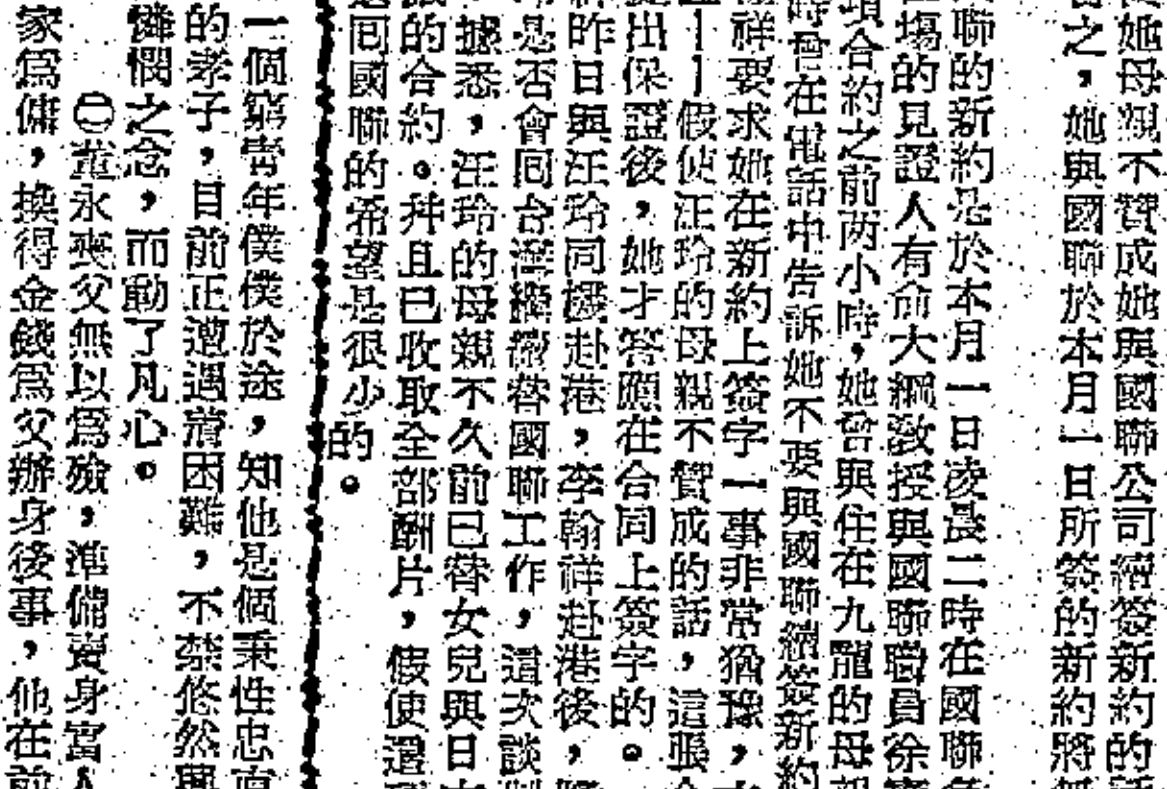 她母親不贊成她與國聯公司續簽新約的話
之,她與國聯於本月一日所簽的新約將無
聯的新約是於本月一日凌晨二時在國聯
場的見證人有俞大綱敎授與國聯職員徐
項合約之前两小時,她曾與住在九龍的母親
時曾在電話中告訴她不要與國聯續簽新約
祥要求她在新約上簽字一事非常猶豫,
——假使汪玲的母親不贊成的話,這張
出保證後,她才答應在合同上簽字的。
昨日與汪玲同機赴港,李翰祥赴港後,
是否會回台灣繼續替國聯工作,這次談
據悉,汪玲的母親不久前已替女兒與日
的合約。幷且已收取全部酬片,假使還
回國聯的希望是很小的。
一個窮靑年僕僕於途,知他是個秉性忠直
的孝子,目前正遭遇着困難,不禁悠然興
憐憫之念,而動了凡心。
㊁董永喪父無以爲殮,準備賣身富人
家爲傭,換得金錢爲父辦身後事,他在前